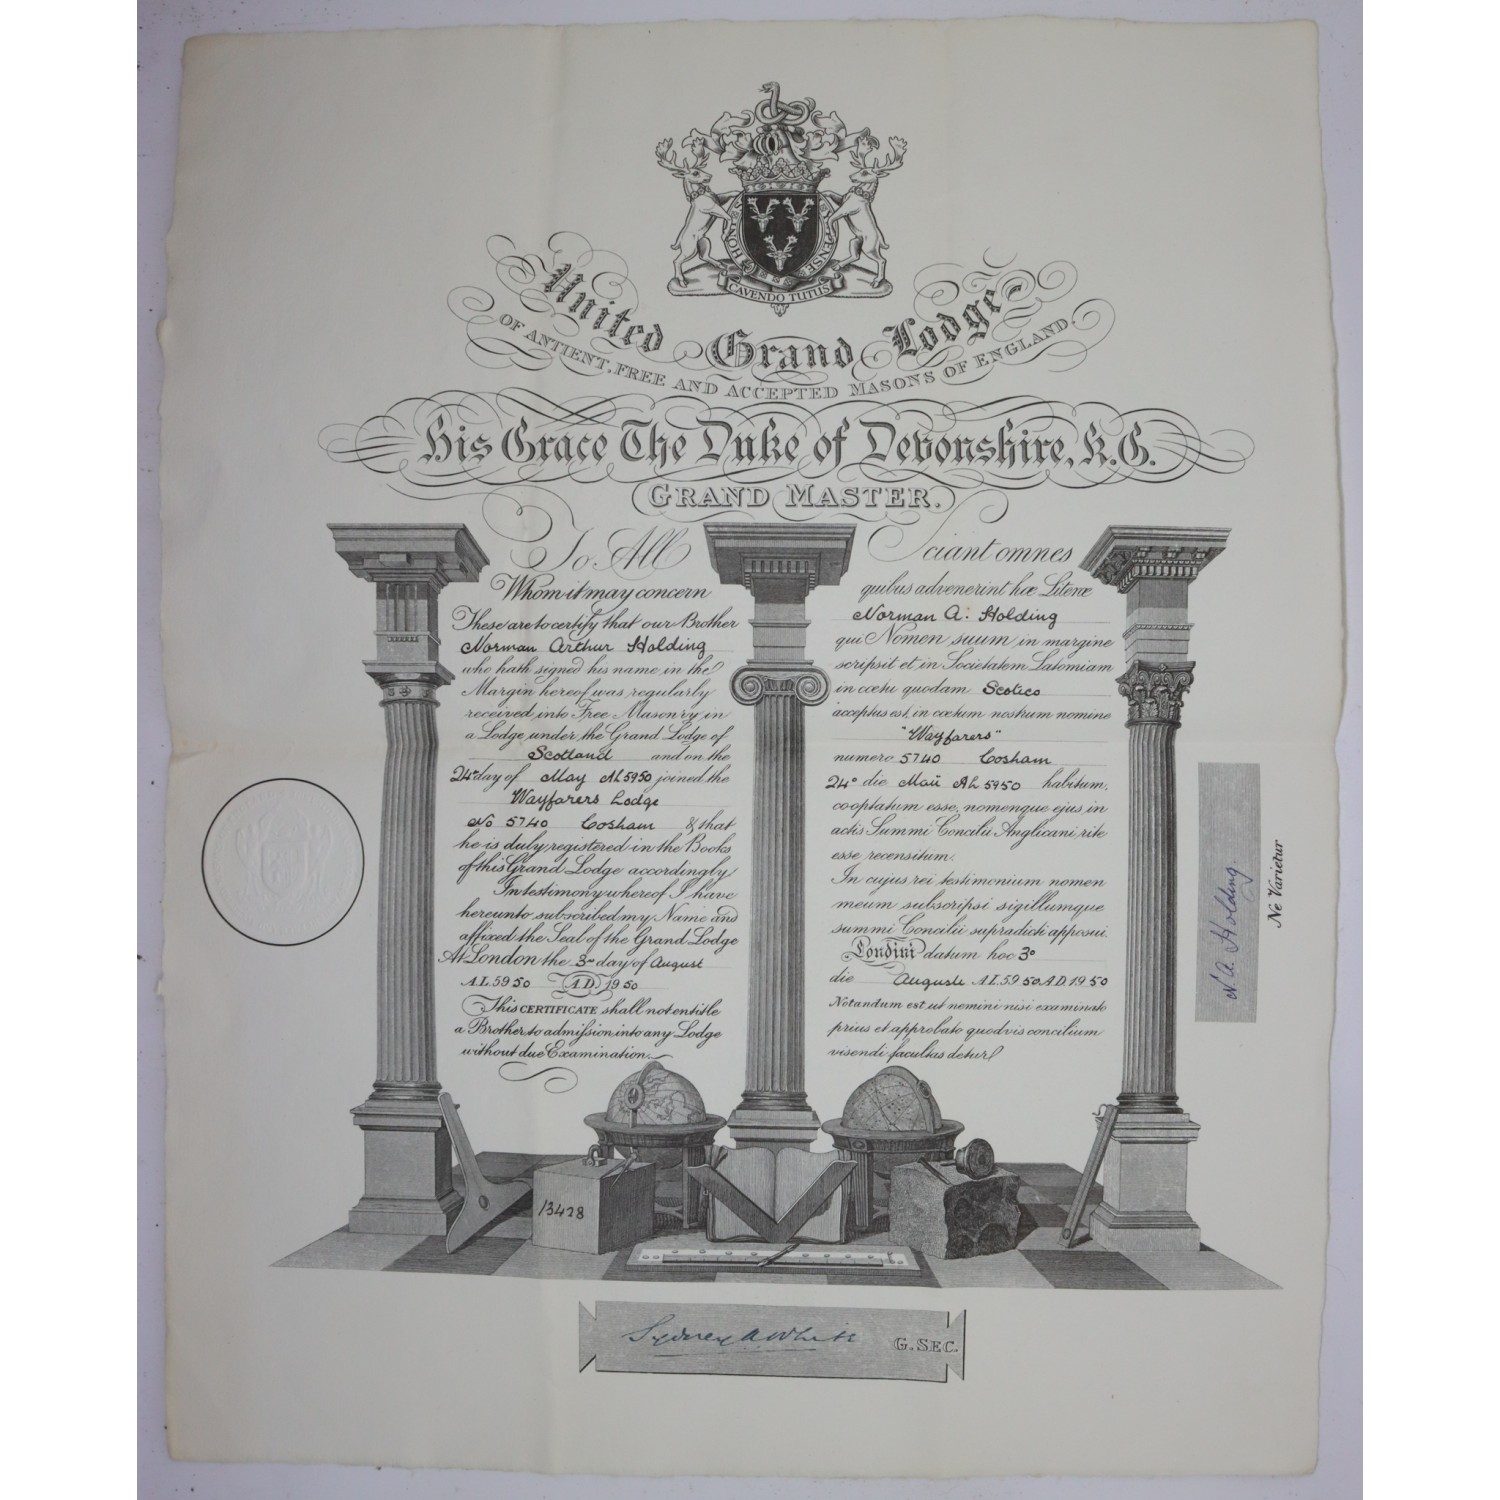 HONI SOIT PENSE
CAVENDO TUTUS
United Grand Lodge
OF ANTIENT, FREE AND ACCEPTED MASONS OF ENGLAND.
His Grace The Duke of Devonshire, K.G.
GRAND MASTER.
To All
Whom it may concern
These are to certify that our Brother
Norman Arthur Holding
who hath signed his name in the
Margin hereof was regularly
received into Free Masonry in
a Lodge under the Grand Lodge of
Scotland and on the
24th day of May AL 5950 joined the
Wayfarers Lodge
No 5740 Cosham & that
he is duly registered in the Books
of this Grand Lodge accordingly
In testimony whereof I have
hereunto subscribed my Name and
affixed the Seal of the Grand Lodge
At London the 3rd day of August
A.L. 5950 A.D. 1950
This CERTIFICATE shall not entitle
a Brother to admission into any Lodge
without due Examination.
Sciant omnes
quibus advenerint hœ Literœ
Norman A. Holding
qui Nomen suum in margine
scripsit et in Societatem Latomiam
in cœtu quodam Scotico
acceptus est, in cœtum nostrum nomine
"Wayfarers"
numero 5740 Cosham
24o die Maii AL 5950 habitum,
cooptatum esse, nomenque ejus in
actis Summi Concilii Anglicani rite
esse recensitum.
In cujus rei testimonium nomen
meum subscripsi sigillumque
summi Concilii supradicti apposui.
Londini datum hoc 3o
die Augusti A.L. 5950 A.D. 1950
Notandum est ut nemini nisi examinato
prius et approbato quodvis concilium
visendi facultas detur
N. A. Holding
Ne Varietur
13428
Sydney A White G. SEC.